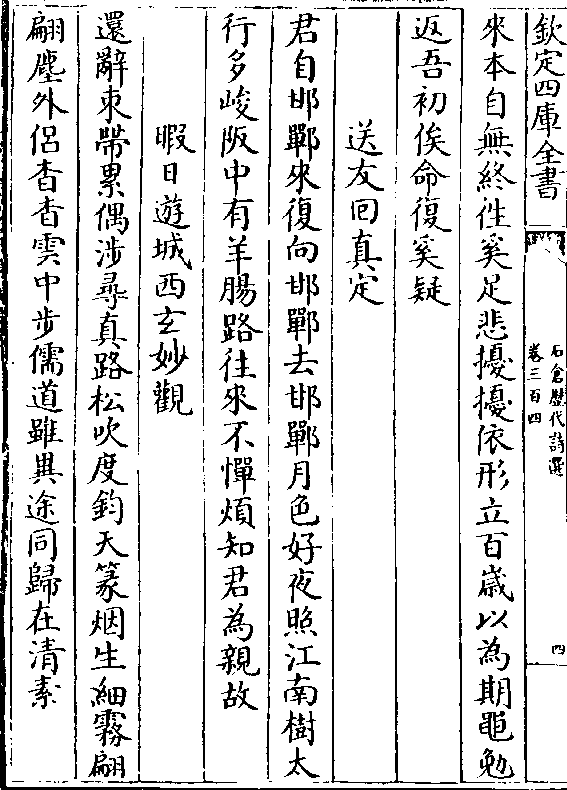 欽定四庫全書
石倉歷代詩選
卷三百四
四
來本自無終徃奚足悲擾擾依形立百歳以為期黽勉
返吾初俟命復奚疑
送友回真定
君自邯鄲來復向邯鄲去邯鄲月色好夜照江南樹太
行多峻阪中有羊腸路往來不憚煩知君為親故
暇日遊城西玄妙觀
還辭束帶累偶涉尋真路松吹度鈞天篆烟生細霧翩
翩塵外侣杳杳雲中步儒道雖異途同歸在清素